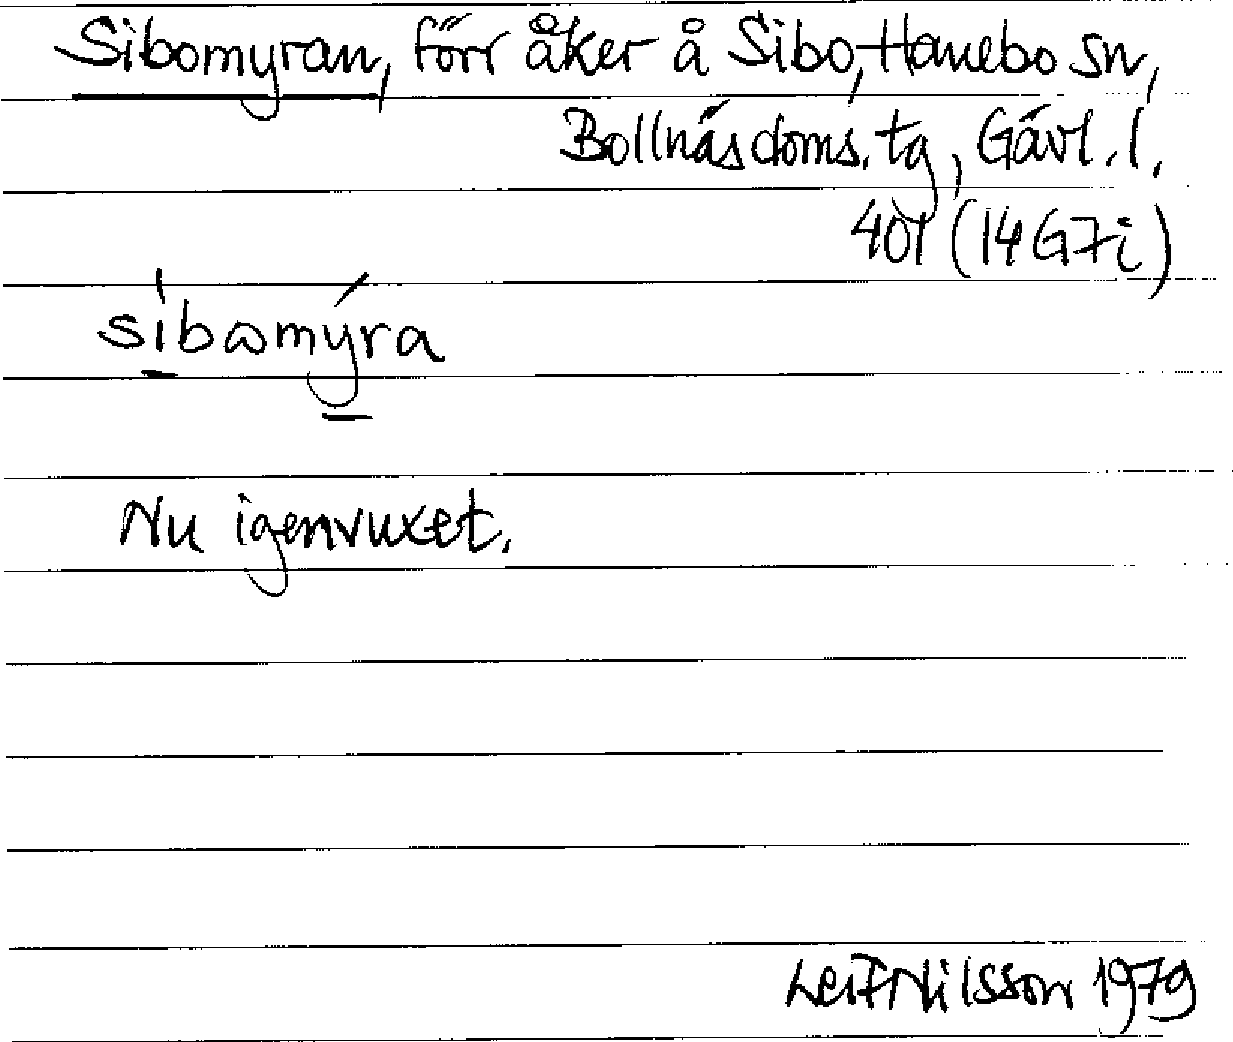 Sibomyran, förr åker å Sibo, Hanebo sn,
Bollnäs doms. tg, Gävl. l.
401 (14G7i)
síbωmýra
Nu igenvuxet.
Leif Nilsson 1979